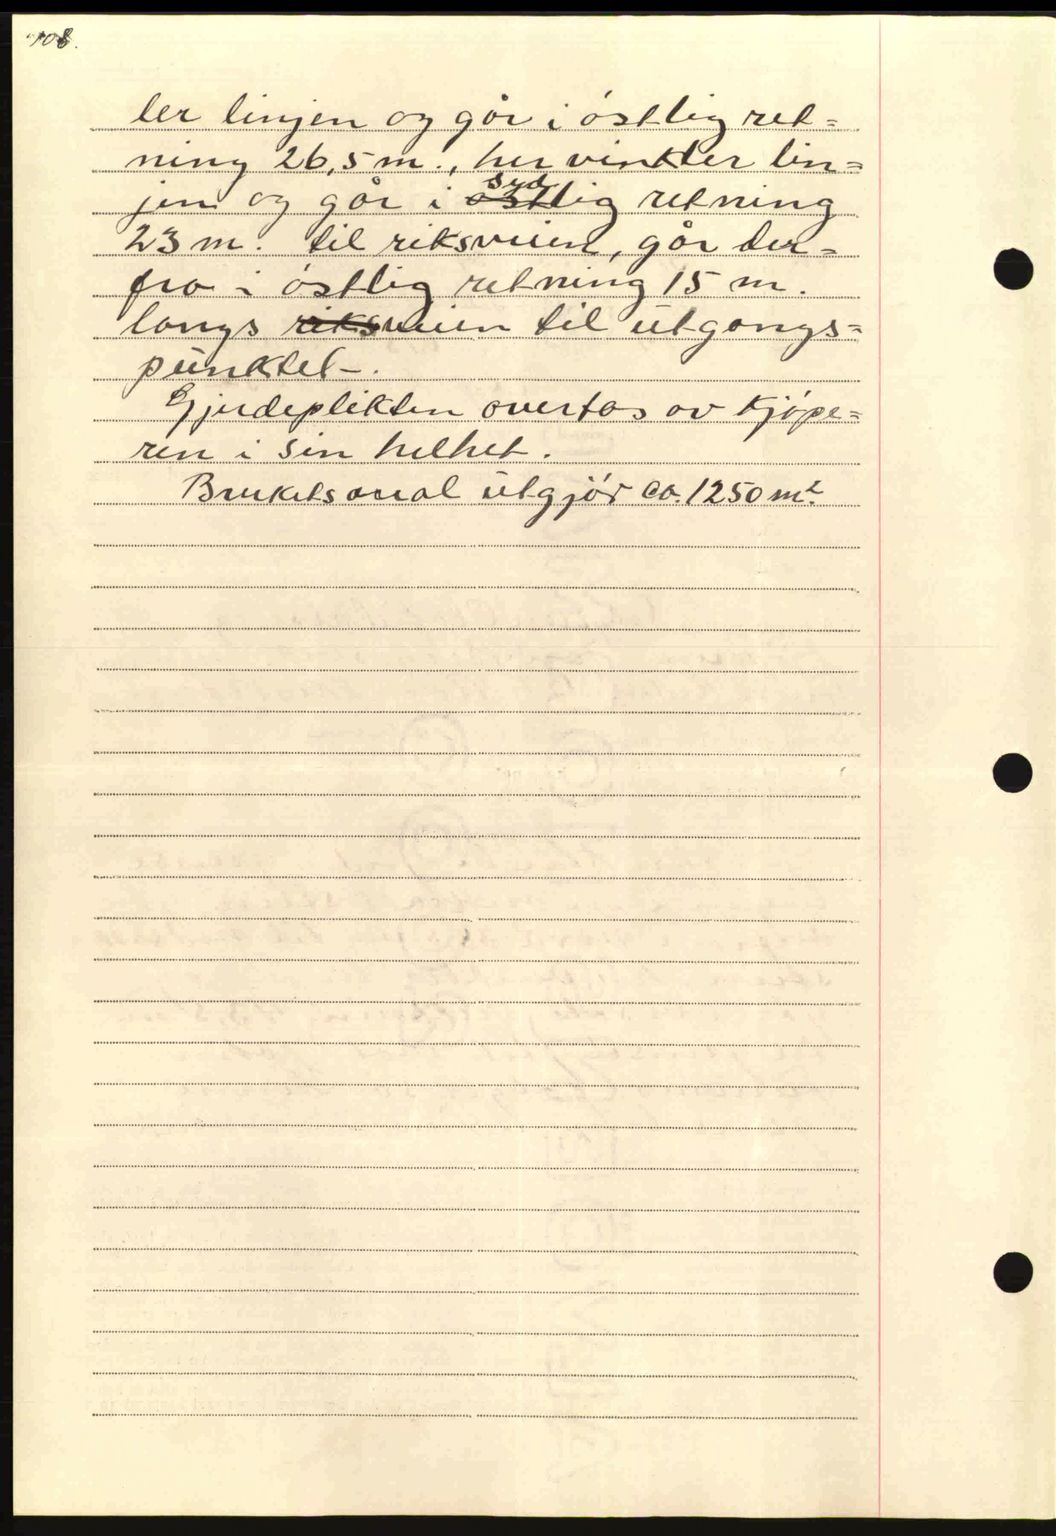 408.
ler linjen og går i östlig ret=
ning 26,5 m., her vinkler lin=
jen og går i sydlig retning
23 m. til riksveien, går der=
fra i östlig retning 15 m.
langs riksveien til utgangs=
punktet-.
Gjerdeplikten overtas av kjöpe=
ren i sin helhet.
Brukets areal utgjör ca. 1250 m².